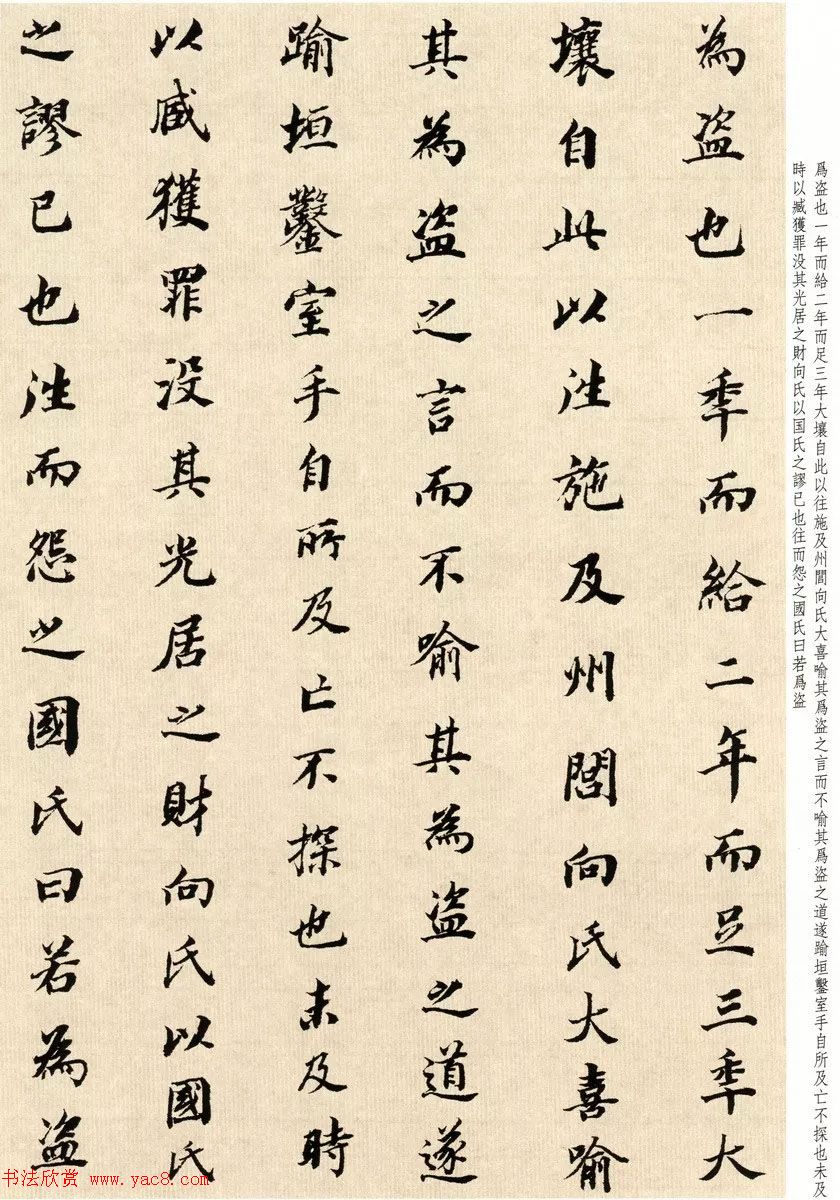 爲盗也一年而給二年而足三年大壤自此以往施及州閭向氏大喜喻其爲盗之言而不喻其爲盗之道遂踰垣鑿室手自所及亡不探也未及
時以臧獲罪没其光居之財向氏以国氏之謬已也往而怨之國氏曰若爲盗
為盗也一年而給二年而足三年大
壤自此以往施及州閭向氏大喜喻
其為盗之言而不喻其為盗之道遂
踰垣鑿室手自所及亡不探也未及時
以臧獲罪没其光居之財向氏以國氏
之謬已也往而怨之國氏曰若為盗
书法欣赏 www.yac8.com